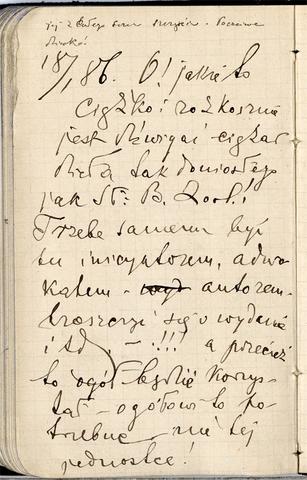 jej z całego serca Szczęścia. Poczciwa
dziewka!
18/1, 86. O! jakie to
ciężko i rozkosznie
jest dźwigać ciężar
dzieła tak doniosłego
jak St. B. Zool.!
Trzeba samemu być
tu inicyatorem, adwo-
katem - autorem
troszczyć się o wydanie
i td. - !!! a przecież
to ogół będzie korzys-
tał - ogółowi to po-
trzebne nie tej
jednostce!